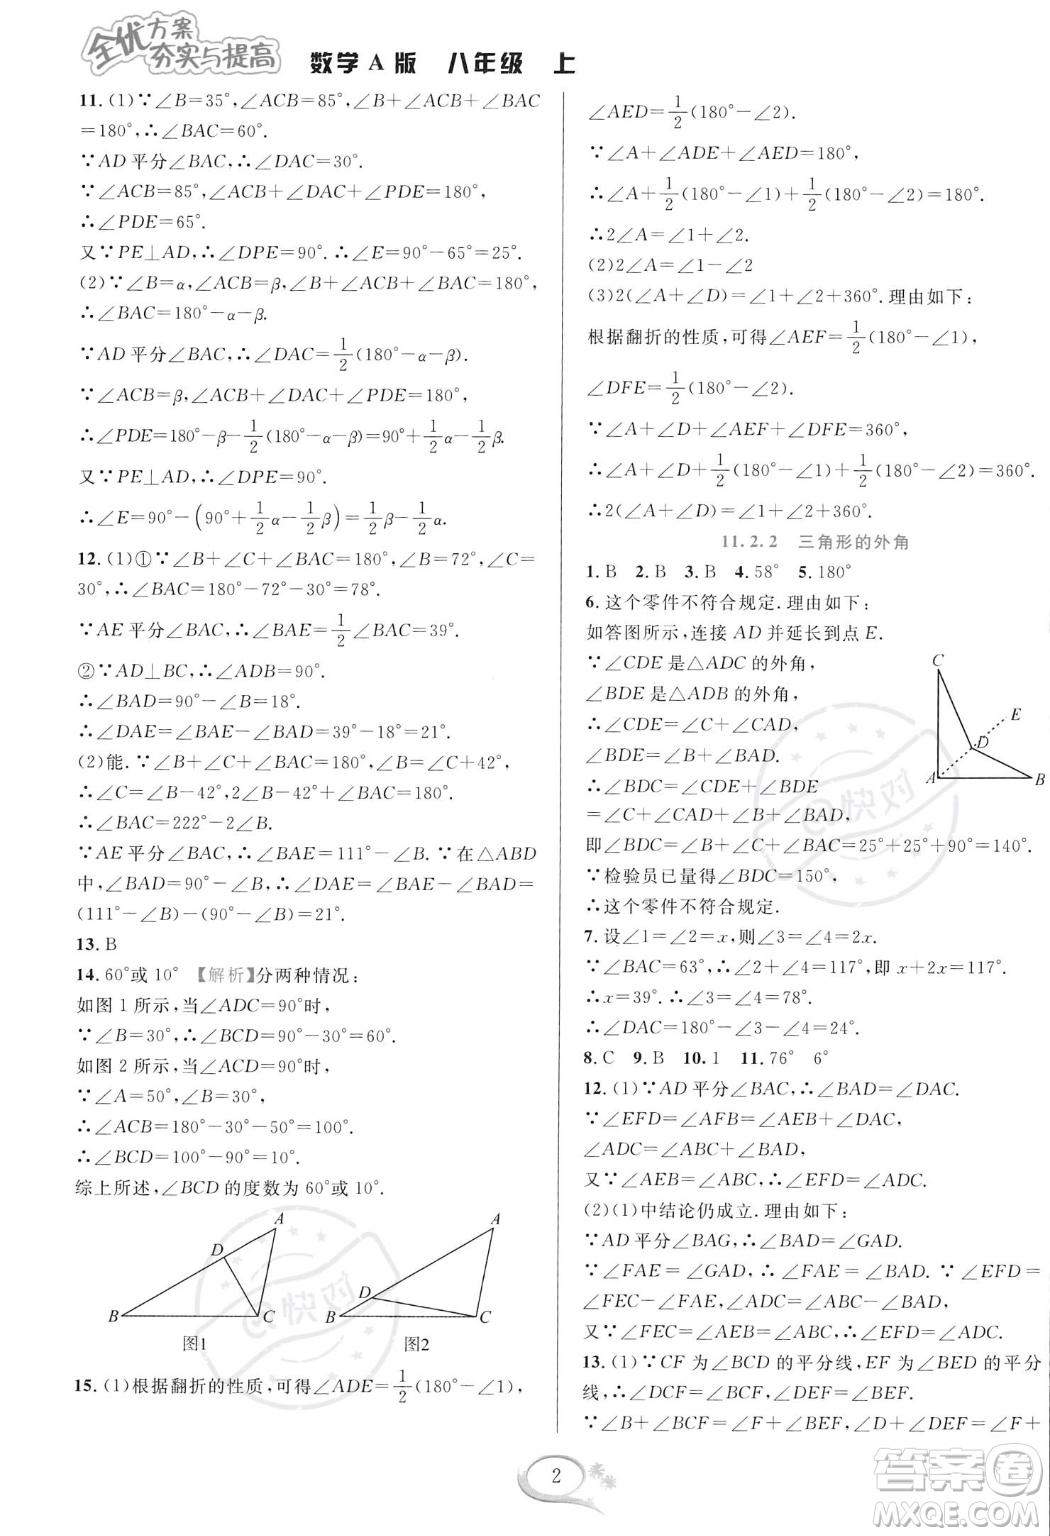 全优方案
夯实与提高
数学A版 八年级 上
11.(1)∵∠B=35°,∠ACB=85°,∠B+∠ACB+∠BAC
=180°,∴∠BAC=60°.
∵AD平分∠BAC,∴∠DAC=30°.
∵∠ACB=85°,∠ACB+∠DAC+∠PDE=180°,
∴∠PDE=65°.
又∵PE⊥AD,∴∠DPE=90°.∴∠E=90°-65°=25°.
(2)∵∠B=α,∠ACB=β,∠B+∠ACB+∠BAC=180°,
∴∠BAC=180°-α-β.
∵AD平分∠BAC,∴∠DAC=1/2(180°-α-β).
∵∠ACB=β,∠ACB+∠DAC+∠PDE=180°,
∴∠PDE=180°-β-1/2(180°-α-β)=90°+1/2α-1/2β.
又∵PE⊥AD,∴∠DPE=90°.
∴∠E=90°-(90°+1/2α-1/2β)=1/2β-1/2α.
12.(1)①∵∠B+∠C+∠BAC=180°,∠B=72°,∠C=
30°,∴∠BAC=180°-72°-30°=78°.
∵AE平分∠BAC,∴∠BAE=1/2∠BAC=39°.
②∵AD⊥BC,∴∠ADB=90°.
∴∠BAD=90°-∠B=18°.
∴∠DAE=∠BAE-∠BAD=39°-18°=21°.
(2)能.∵∠B+∠C+∠BAC=180°,∠B=∠C+42°,
∴∠C=∠B-42°,2∠B-42°+∠BAC=180°.
∴∠BAC=222°-2∠B.
∵AE平分∠BAC,∴∠BAE=111°-∠B.∵在△ABD
中,∠BAD=90°-∠B,∴∠DAE=∠BAE-∠BAD=
(111°-∠B)-(90°-∠B)=21°.
13.B
14.60°或10° 【解析】分两种情况:
如图1所示,当∠ADC=90°时,
∵∠B=30°,∴∠BCD=90°-30°=60°.
如图2所示,当∠ACD=90°时,
∵∠A=50°,∠B=30°,
∴∠ACB=180°-30°-50°=100°.
∴∠BCD=100°-90°=10°.
综上所述,∠BCD的度数为60°或10°.
A
D
B
C
图1
A
D
B
C
图2
15.(1)根据翻折的性质,可得∠ADE=1/2(180°-∠1),
∠AED=1/2(180°-∠2).
∵∠A+∠ADE+∠AED=180°,
∴∠A+1/2(180°-∠1)+1/2(180°-∠2)=180°.
∴2∠A=∠1+∠2.
(2)2∠A=∠2-∠1
(3)2(∠A+∠D)=∠1+∠2+360°.理由如下:
根据翻折的性质,可得∠AEF=1/2(180°-∠1),
∠DFE=1/2(180°-∠2).
∵∠A+∠D+∠AEF+∠DFE=360°,
∴∠A+∠D+1/2(180°-∠1)+1/2(180°-∠2)=360°.
∴2(∠A+∠D)=∠1+∠2+360°.
11.2.2 三角形的外角
1.B 2.B 3.B 4.58° 5.180°
6.这个零件不符合规定.理由如下:
如答图所示,连接AD并延长到点E.
∵∠CDE是△ADC的外角,
∠BDE是△ADB的外角,
∴∠CDE=∠C+∠CAD,
∠BDE=∠B+∠BAD.
∴∠BDC=∠CDE+∠BDE
=∠C+∠CAD+∠B+∠BAD,
即∠BDC=∠B+∠C+∠BAC=25°+25°+90°=140°.
∵检验员已量得∠BDC=150°,
∴这个零件不符合规定.
C
E
D
A
B
7.设∠1=∠2=x,则∠3=∠4=2x.
∵∠BAC=63°,∴∠2+∠4=117°,即x+2x=117°.
∴x=39°.∴∠3=∠4=78°.
∴∠DAC=180°-∠3-∠4=24°.
8.C 9.B 10.1 11.76° 6°
12.(1)∵AD平分∠BAC,∴∠BAD=∠DAC.
∵∠EFD=∠AFB=∠AEB+∠DAC,
∠ADC=∠ABC+∠BAD,
又∵∠AEB=∠ABC,∴∠EFD=∠ADC.
(2)(1)中结论仍成立.理由如下:
∵AD平分∠BAG,∴∠BAD=∠GAD.
∵∠FAE=∠GAD,∴∠FAE=∠BAD.∵∠EFD=
∠FEC-∠FAE,∠ADC=∠ABC-∠BAD,
又∵∠FEC=∠ABC,∴∠EFD=∠ADC.
13.(1)∵CF为∠BCD的平分线,EF为∠BED的平分
线,∴∠BCF=∠DCF,∠DEF=∠BEF.
∵∠B+∠BCF=∠F+∠BEF,∠D+∠DEF=∠F+
2
@快对
@快对
答案卷
MXQE.COM